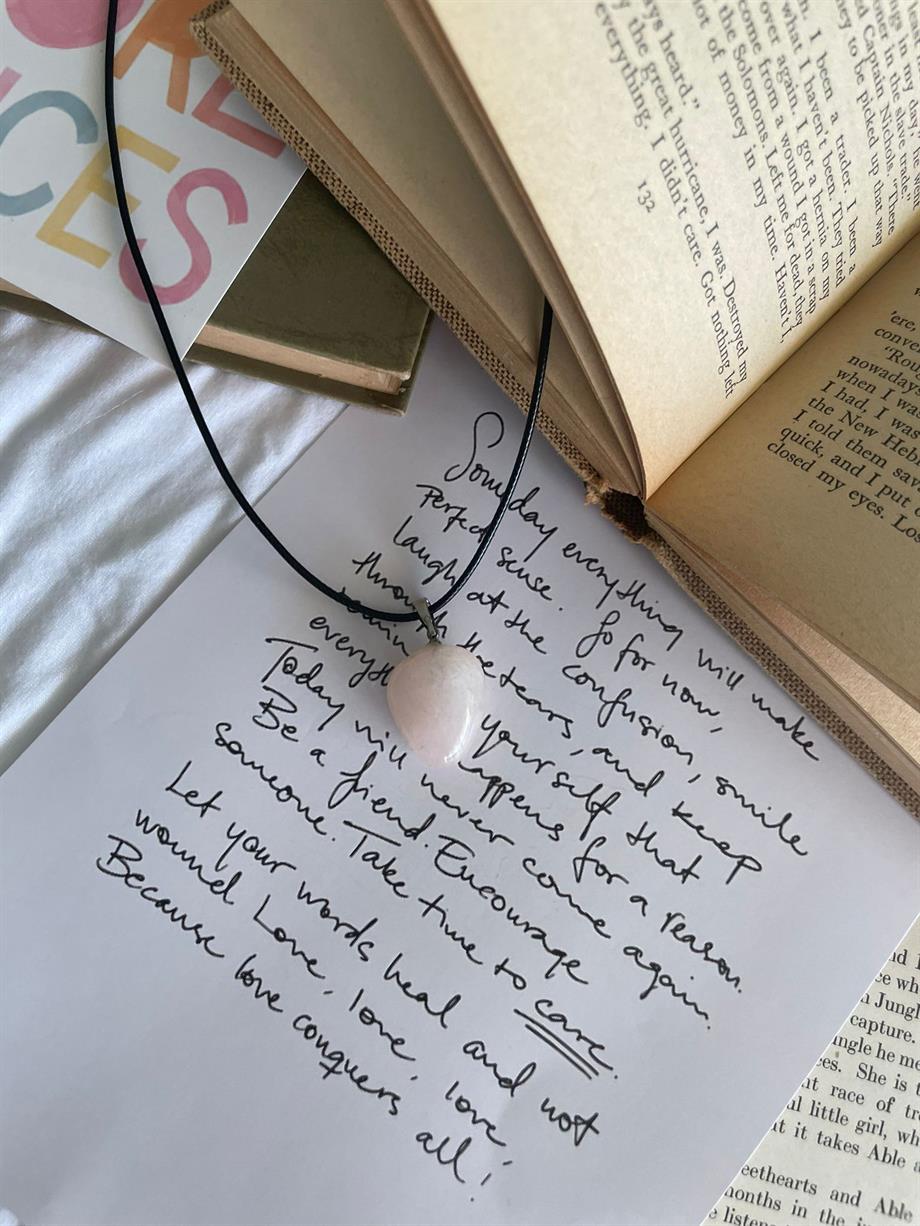 ORE
CES
in my day,
oner in the slave trade."
d Captain Nichols. "There
ey to be picked up that way
n. I been a trader. I been a
what I haven't been. They tried
over again. I got a hernia on my
come from a wound I got in a scrap
the Solomons. Left me for dead, they
lot of money in my time. Haven't I,
ays heard."
the great hurricane, I was. Destroyed my
everything. I didn't care. Got nothing left
132
'ere,
conve
nowadays
when I was
I had, I was
the New Heb
I told them sav
quick, and I put
closed my eyes. Los
Someday everything will make
Perfect sense. So for now,
laugh at the confusion, smile
through the tears, and keep
yourself that
everyth happens for a reason.
Today will never come again.
Be a friend. Encourage
someone. Take time to care.
Let your words heal and not
wound. Love, love, love
Because love conquers all!
Jungl
capture.
ngle he me
ces. She is
nt race of tr
ul little girl, wh
it takes Able
eethearts and Able
months in the
listen